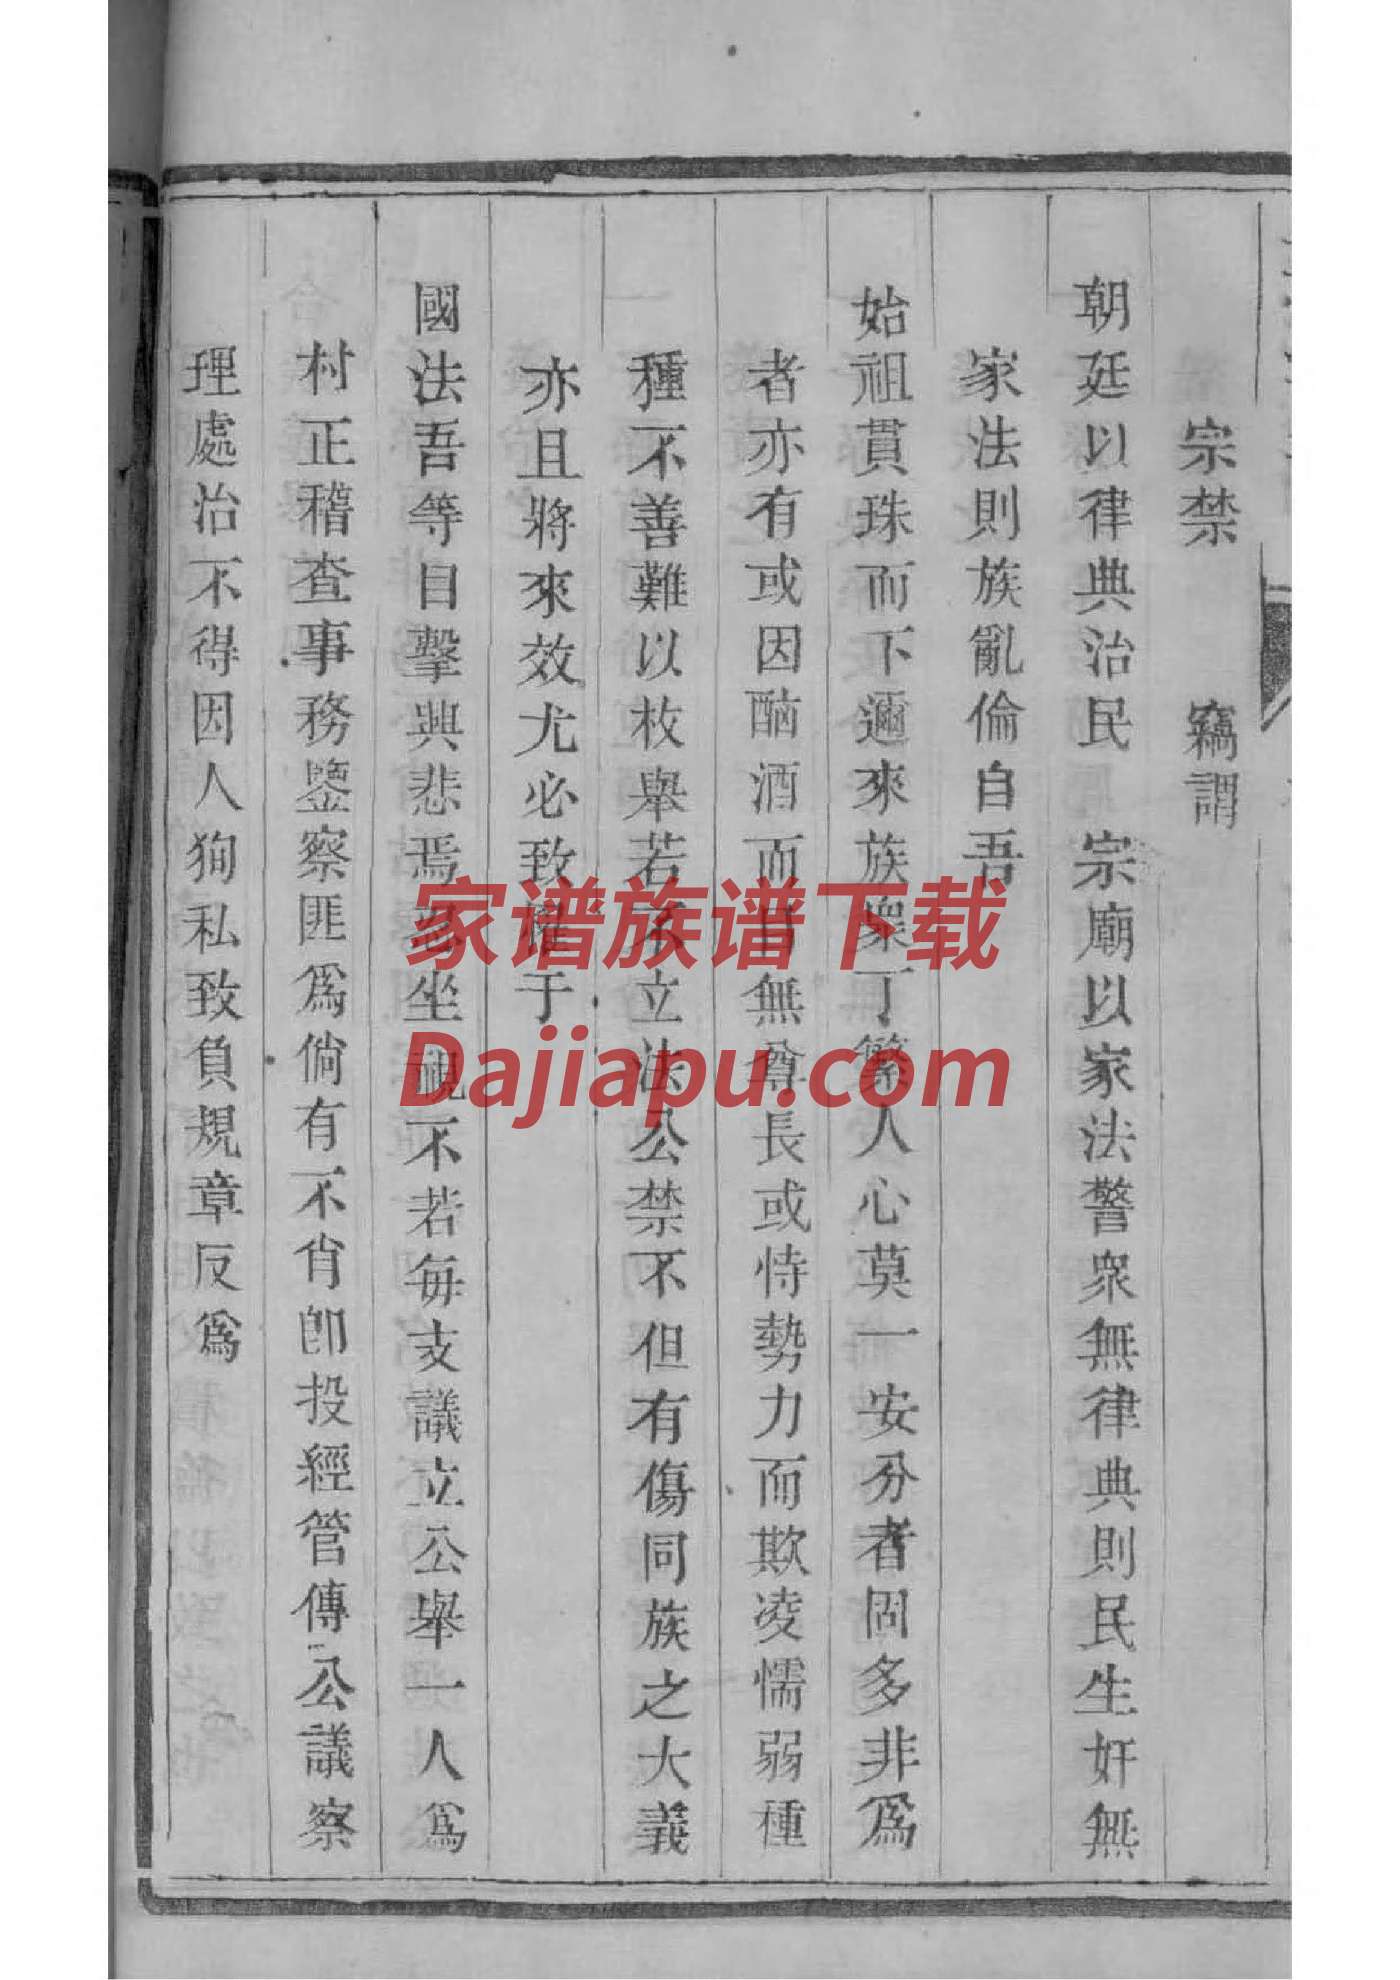 宗禁　竊謂
朝廷以律典治民　宗廟以家法警眾無律典則民生奸無
家法則族亂倫自吾
始祖貫珠而下邇來族眾丁繁人心莫一安分者固多非為
者亦有或因酗酒而目無尊長或恃勢力而欺凌懦弱種
種不善難以枚舉若不立法公禁不但有傷同族之大義
亦且將來效尤必致罹于
國法吾等目擊興悲焉忍坐視不若每支議立公舉一人為
村正稽查事務鑒察匪為倘有不肖即投經管傳公議察
理處治不得因人狥私致負規章反為
家谱族谱下载
Dajiapu.com